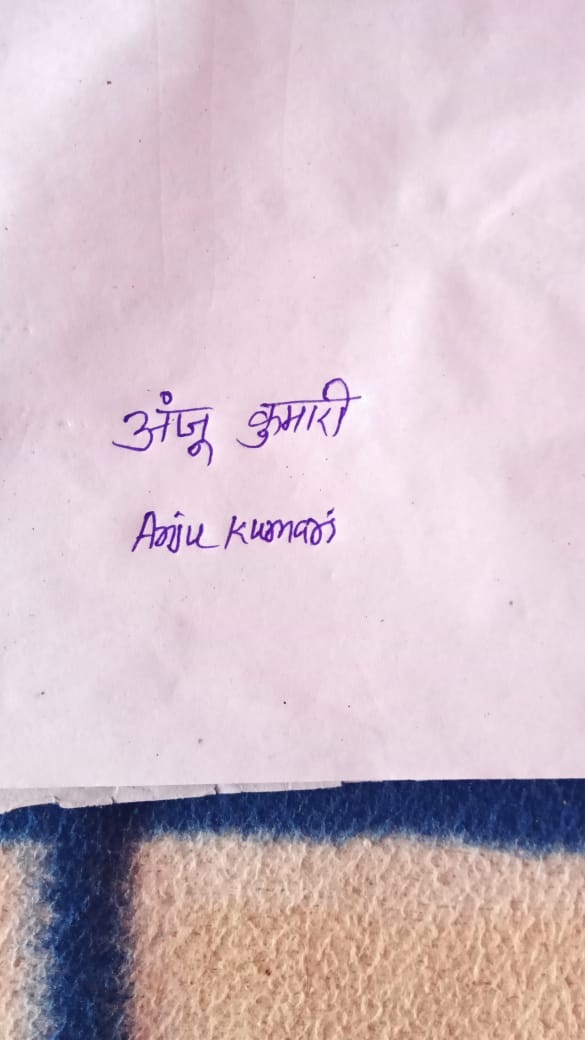 अंजू कुमारी
Anju Kumari